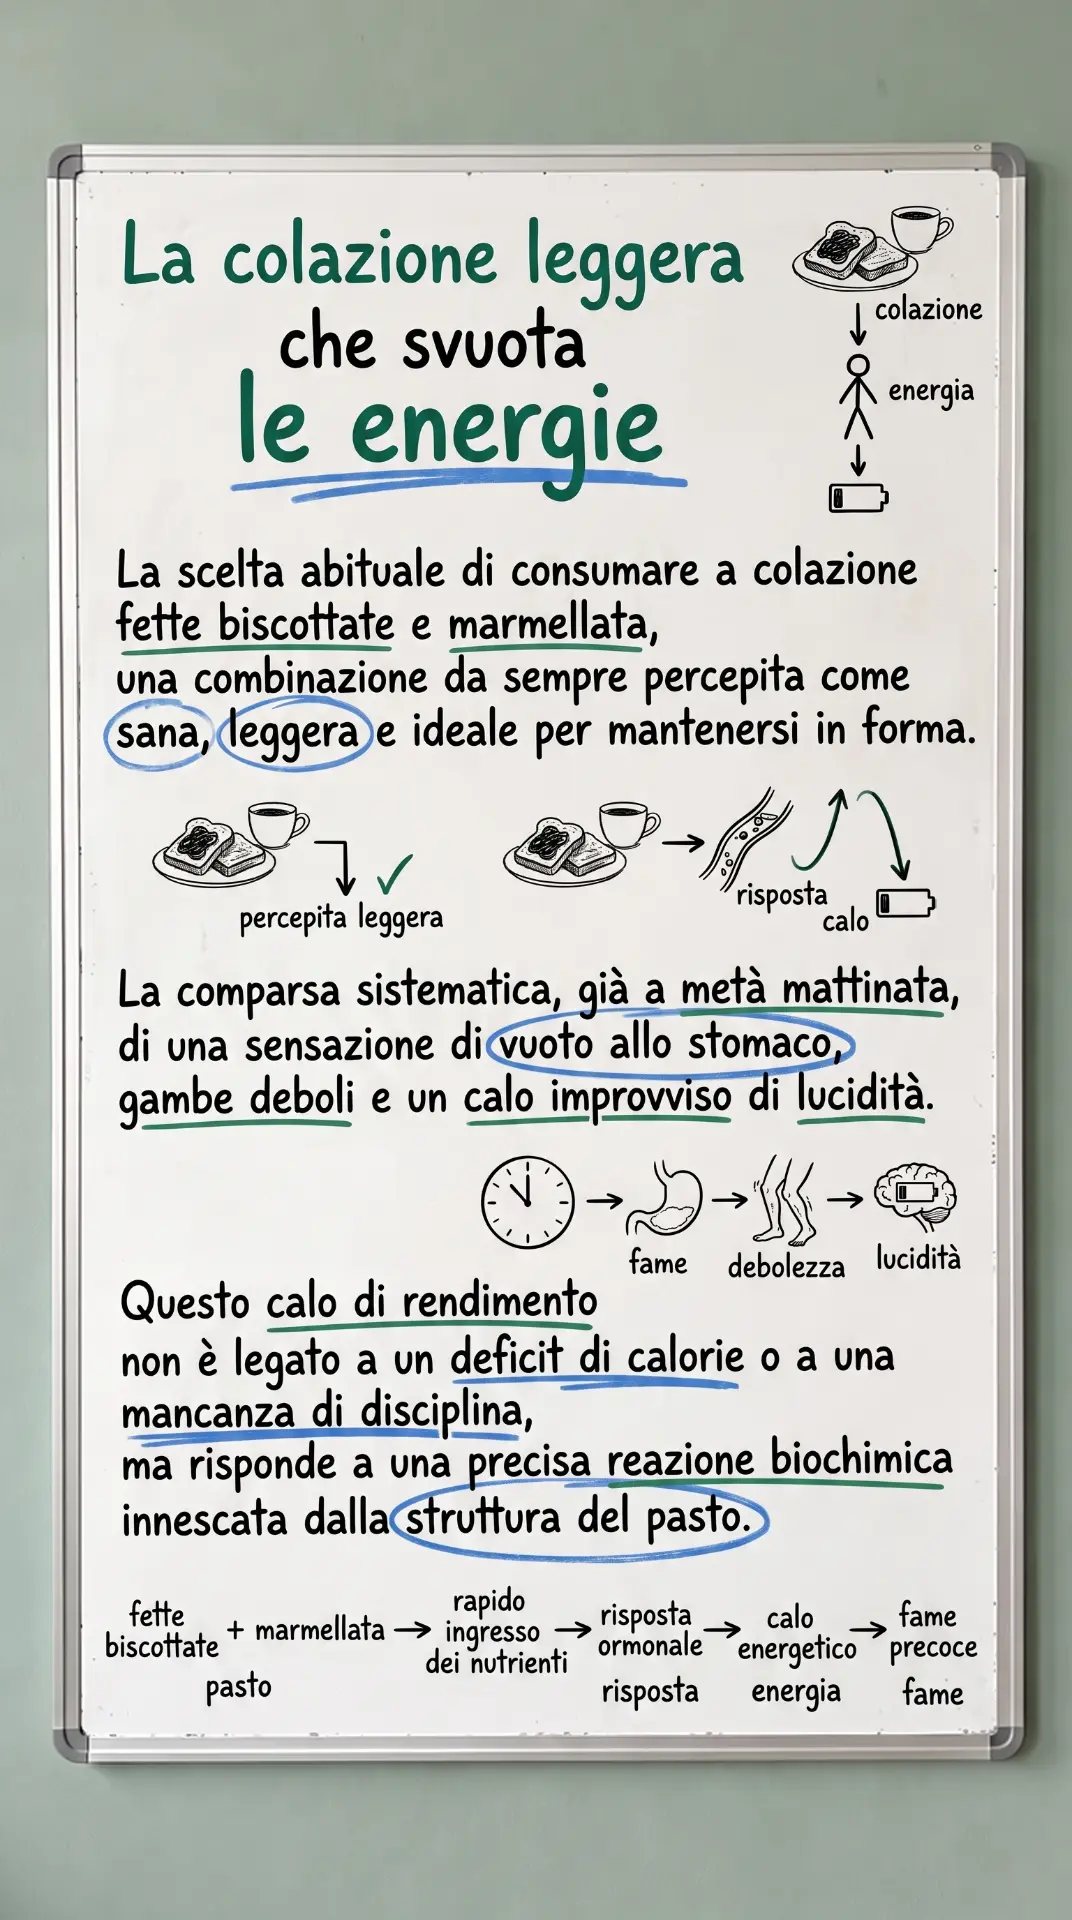 La colazione leggera
che svuota
le energie
colazione
energia
La scelta abituale di consumare a colazione
fette biscottate e marmellata,
una combinazione da sempre percepita come
sana, leggera e ideale per mantenersi in forma.
percepita leggera
risposta
calo
La comparsa sistematica, già a metà mattinata,
di una sensazione di vuoto allo stomaco,
gambe deboli e un calo improvviso di lucidità.
fame
debolezza
lucidità
Questo calo di rendimento
non è legato a un deficit di calorie o a una
mancanza di disciplina,
ma risponde a una precisa reazione biochimica
innescata dalla struttura del pasto.
fette
biscottate
+ marmellata
pasto
rapido
ingresso
dei nutrienti
risposta
ormonale
risposta
calo
energetico
energia
fame
precoce
fame